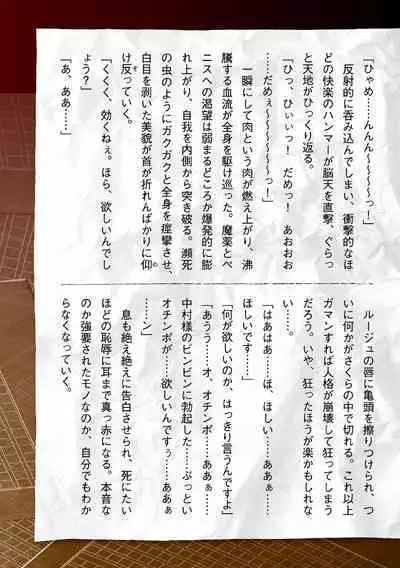 「ひゃめ……んんん～～～～っ！」
　反射的に呑み込んでしまい、衝撃的なほ
どの快楽のハンマーが脳天を直撃、ぐらっ
と天地がひっくり返る。
「ひっ、ひぃぃっ！　だめっ！　あおおお
……だめぇ～～～～～～っ！」
　一瞬にして肉という肉が燃え上がり、沸
騰する血流が全身を駆け巡った。魔薬とペ
ニスへの渇望は弱まるどころか爆発的に膨
れ上がり、自我を内側から突き破る。瀕死
の虫のようにガクガクと全身を痙攣させ、
白目を剥いた美貌が首が折れんばかりに仰
け反っていく。
「くくく、効くねぇ。ほら、欲しいんでし
ょう？」
「あ、ああ……」
　ルージュの唇に亀頭を擦りつけられ、つ
いに何かがさくらの中で切れる。これ以上
ガマンすれば人格が崩壊して狂ってしまう
だろう。いや、狂ったほうが楽かもしれな
い……。
「はあはあ……ほ、ほしい……ああぁ……
ほしいです……」
「何が欲しいのか、はっきり言うんですよ」
「あうう……オ、オチンポ……ああぁ……
中村様のビンビンに勃起した……ぶっとい
オチンポが……欲しいんですぅ……ああぁ
……ン」
　息も絶え絶えに告白させられ、死にたい
ほどの恥辱に耳まで真っ赤になる。本音な
のか強要されたモノなのか、自分でもわか
らなくなっていく。